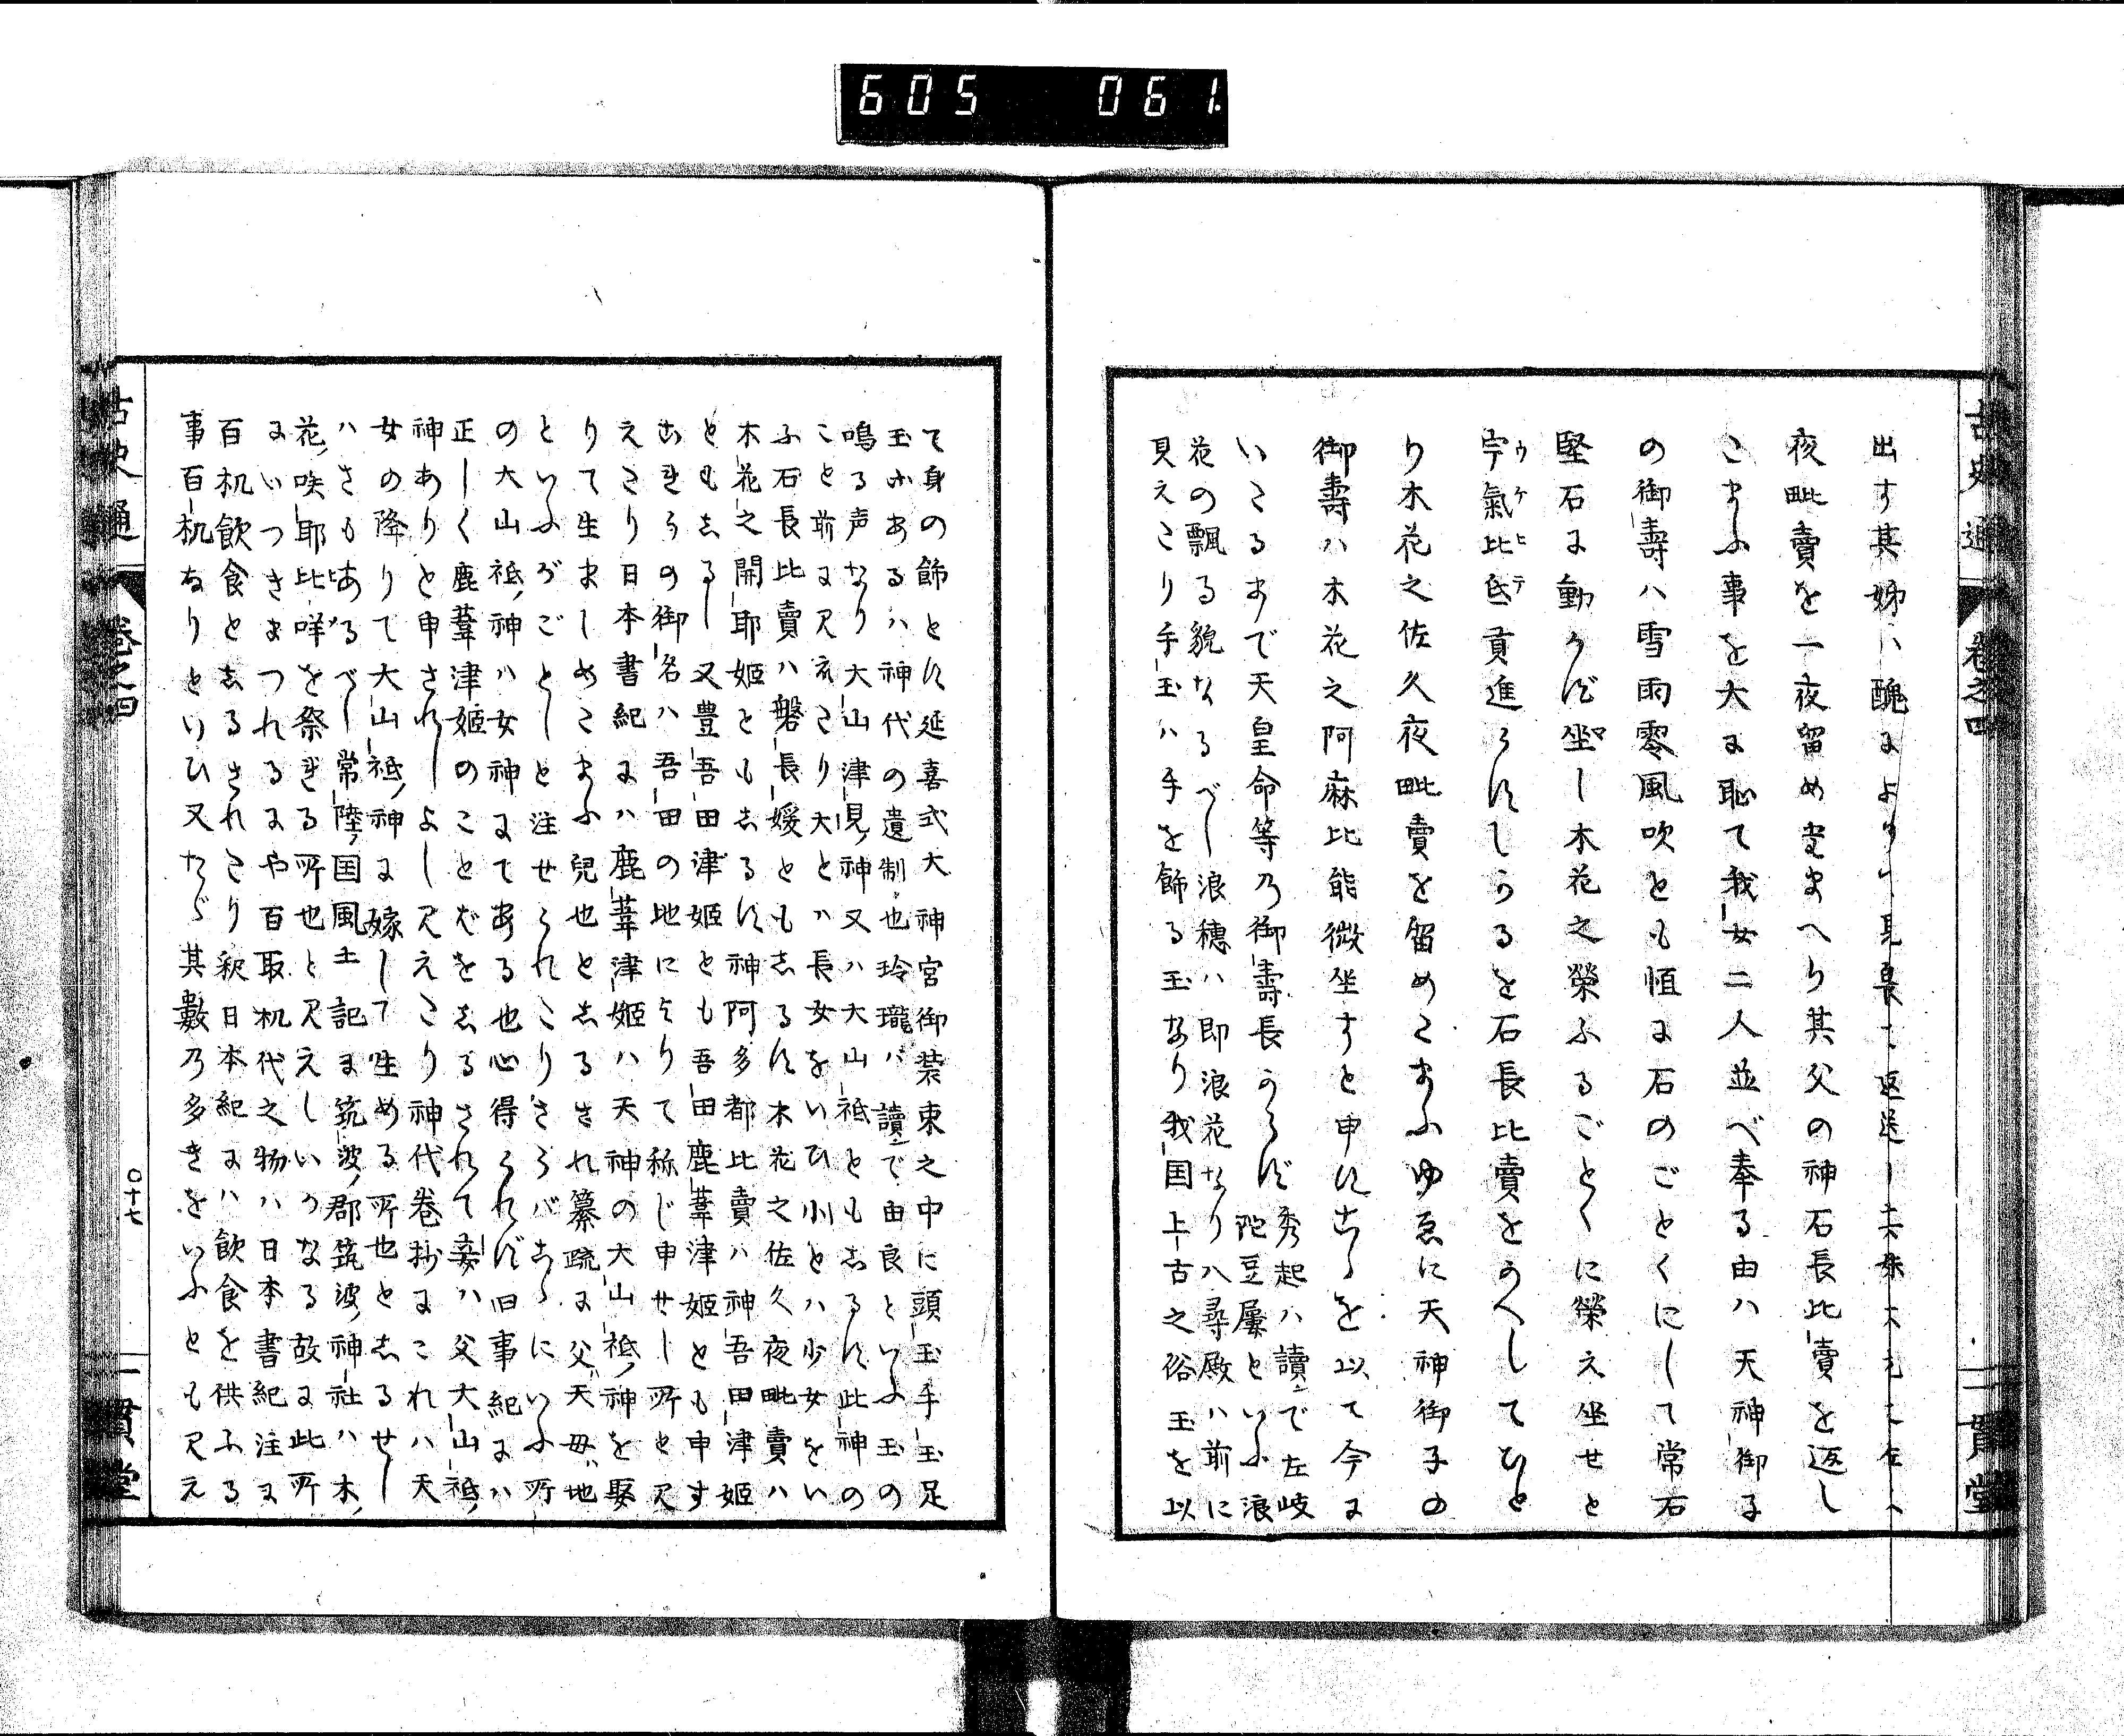 605 061
古史通 卷之四
出す其姉ハ醜によりて見畏て返送し
夜毗賣を一夜留め玉まへり其父の神石長比賣を返し
こまふ事を大に恥て我女二人並べ奉る由ハ天神御子
の御壽ハ雪雨零風吹とも恒に石のごとくにして常石
堅石に動かず坐し木花之榮ふるごとくに榮え坐せと
宇氣比弖貢進らすしかるを石長比賣をかへしてひと
り木花之佐久夜毗賣を留めこまふゆゑに天神御子の
御壽ハ木花之阿麻比能微坐すと申すこゝを以て今に
いこるまで天皇命等乃御壽長からず
秀起ハ讀で左岐
陀豆屢といふ浪
花の飄る貌なるべし浪穗ハ即浪花なり八尋殿ハ前に
見えこり手玉ハ手を飾る玉なり我国上古之俗玉を以
一貫堂
て身の飾とす延喜式大神宮御装束之中に頭玉手玉足
玉等あるハ神代の遺制也玲瓏ハ讀で由良といふ玉の
鳴る声なり大山津見神又ハ大山祇ともしるす此神の
こと前に見えこり大とハ長女をいひ小とハ少女をい
ふ石長比賣ハ磐長媛ともしるす木花之佐久夜毗賣ハ
木花之開耶姫ともしるす神阿多都比賣ハ神吾田津姫
ともしるし又豊吾田津姫とも吾田鹿葦津姫とも申す
これらの御名ハ吾田の地によりて称じ申せし所と見
えこり日本書紀にハ鹿葦津姫ハ天神の大山祇神を娶
りて生ましめこまふ兒也としるされ纂疏に父天母地
といふがごとしと注せられこりさらバこゝにいふ所
の大山祇神ハ女神にてある也心得られず旧事紀にハ
正しく鹿葦津姫のことばをしるされて妾ハ父大山祇
神ありと申されしよし見えこり神代巻抄にこれハ天
女の降りて大山祇神に嫁して生める所也としるせし
ハさもあるべし常陸国風土記に筑波郡筑波神社ハ木
花咲耶比咩を祭ぎる所也と見えしいかなる故に此所
にいつきまつれるにや百取机代之物ハ日本書紀注に
百机飲食としるされこり釈日本紀にハ飲食を供ふる
事百机なりといひ又たゞ其數乃多きをいふとも見え
古史通 卷之四
〇十七
一貫堂